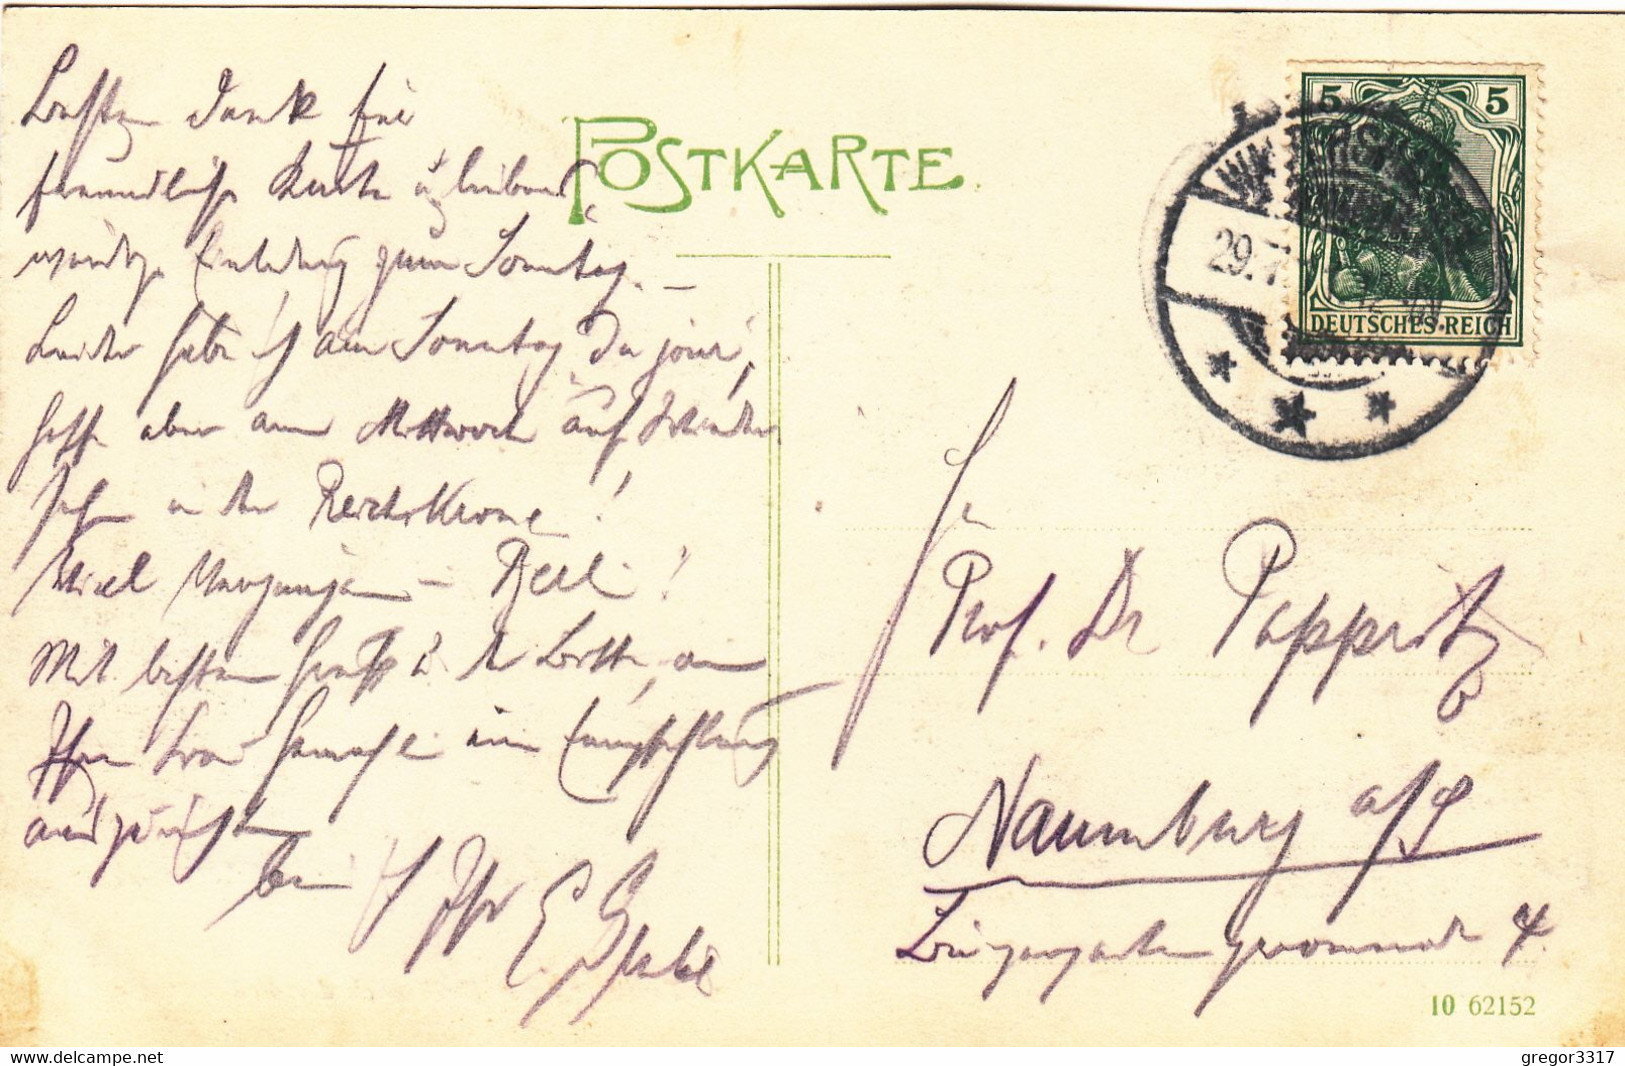 Besten Dank für
freundliche Karte u. liebens-
würdige Einladung zum Sonntag. –
Leider habe ich am Sonntag Du jour,
hoffe aber am Mittwoch auf Wieder-
sehn in der Reichskrone!
Viel Vergnügen – Berlin!
Mit besten Gruß u. der Bitte, an
Ihre Frau Gemahlin eine Empfehlung
auszurichten
bin ich Ihr E.
POSTKARTE
5 5
DEUTSCHES REICH
29.7
Prof. Dr Pappritz
Naumburg a/S
Bürgergartenpromenade 4.
10 62152
gregor3317